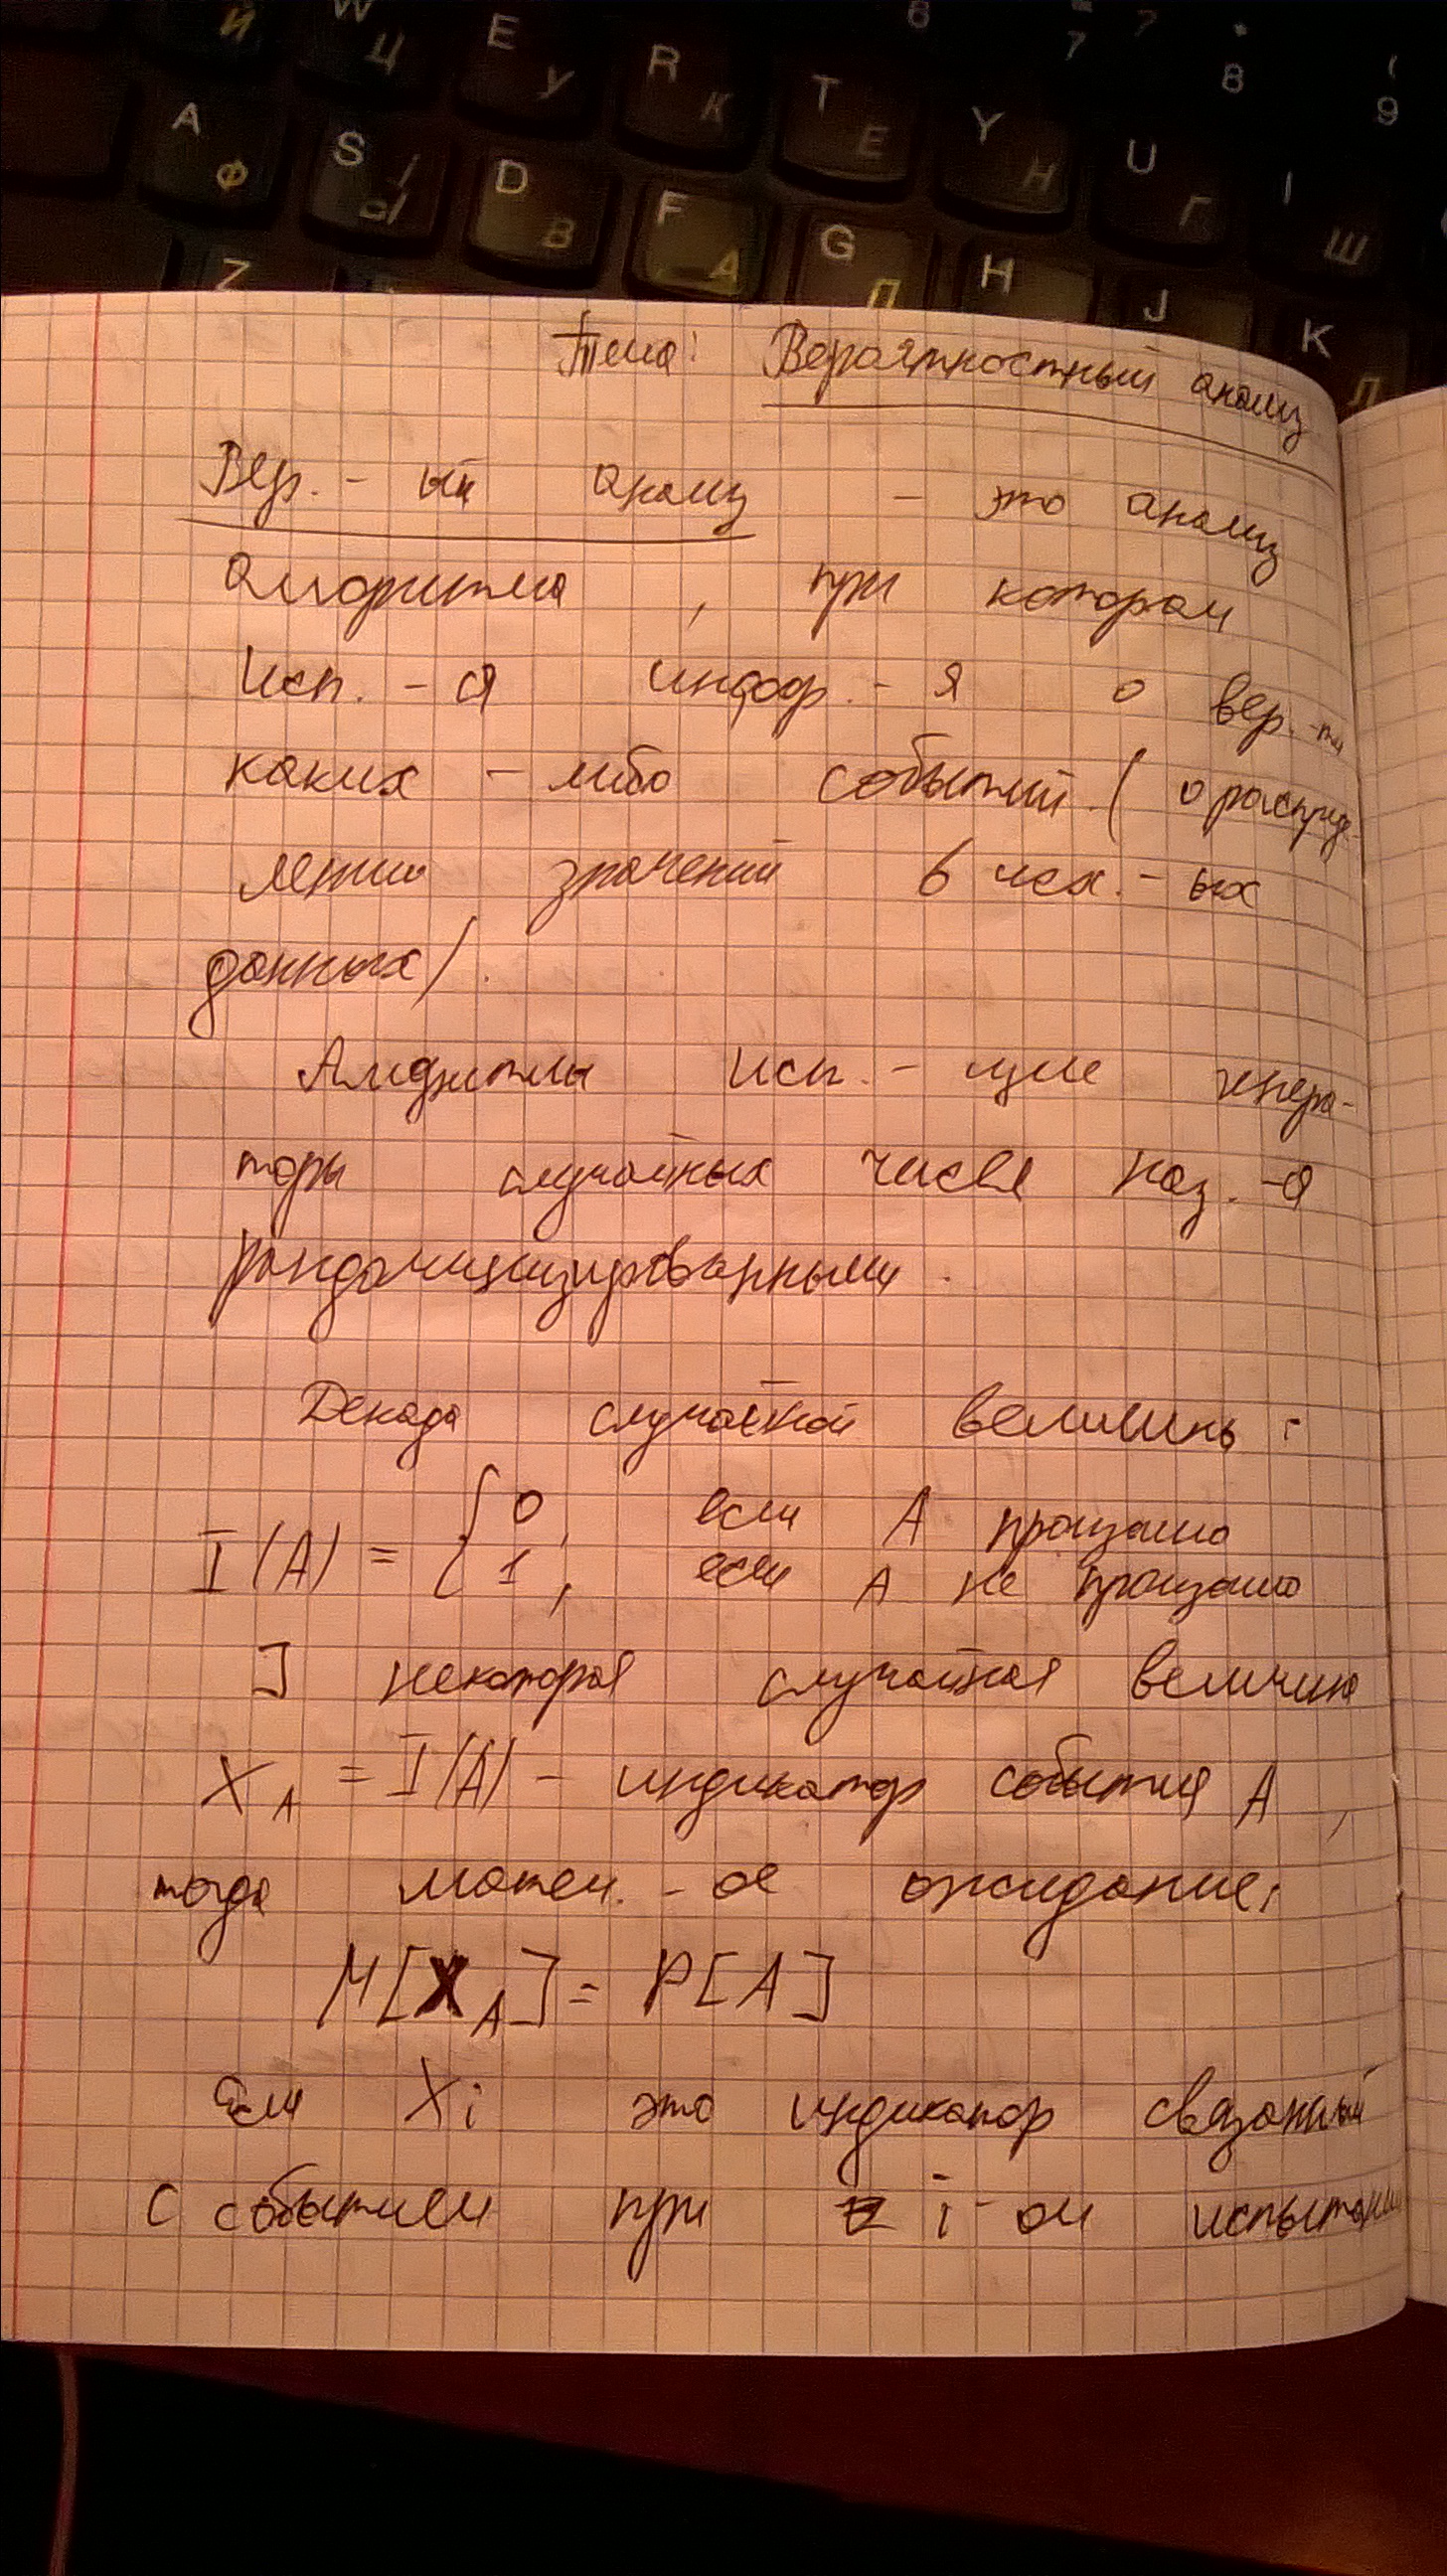 W E R T Y U I
Й Ц У К Е Н Г Ш
6 7 8 9
A S D F G H J K
Ф Ы В А П Л
Z
Тема: Вероятностный анализ
Вер.-ый анализ - это анализ
алгоритма, при котором
исп.-ся информ.-я о вер.-ти
каких-либо событий (о распреде-
лении значений в исх.-ых
данных).
Алгоритмы исп.-щие генера-
торы случайных чисел наз.-ся
случайной величины:
I(A) = { 0, если A произошло
1, если A не произошло
] некоторая случайная величина
X_A = I(A) - индикатор события A,
тогда матем.-ое ожидание:
M[X_A] = P[A]
Если Xi это индикатор связанный
с событием при i-ом испытании